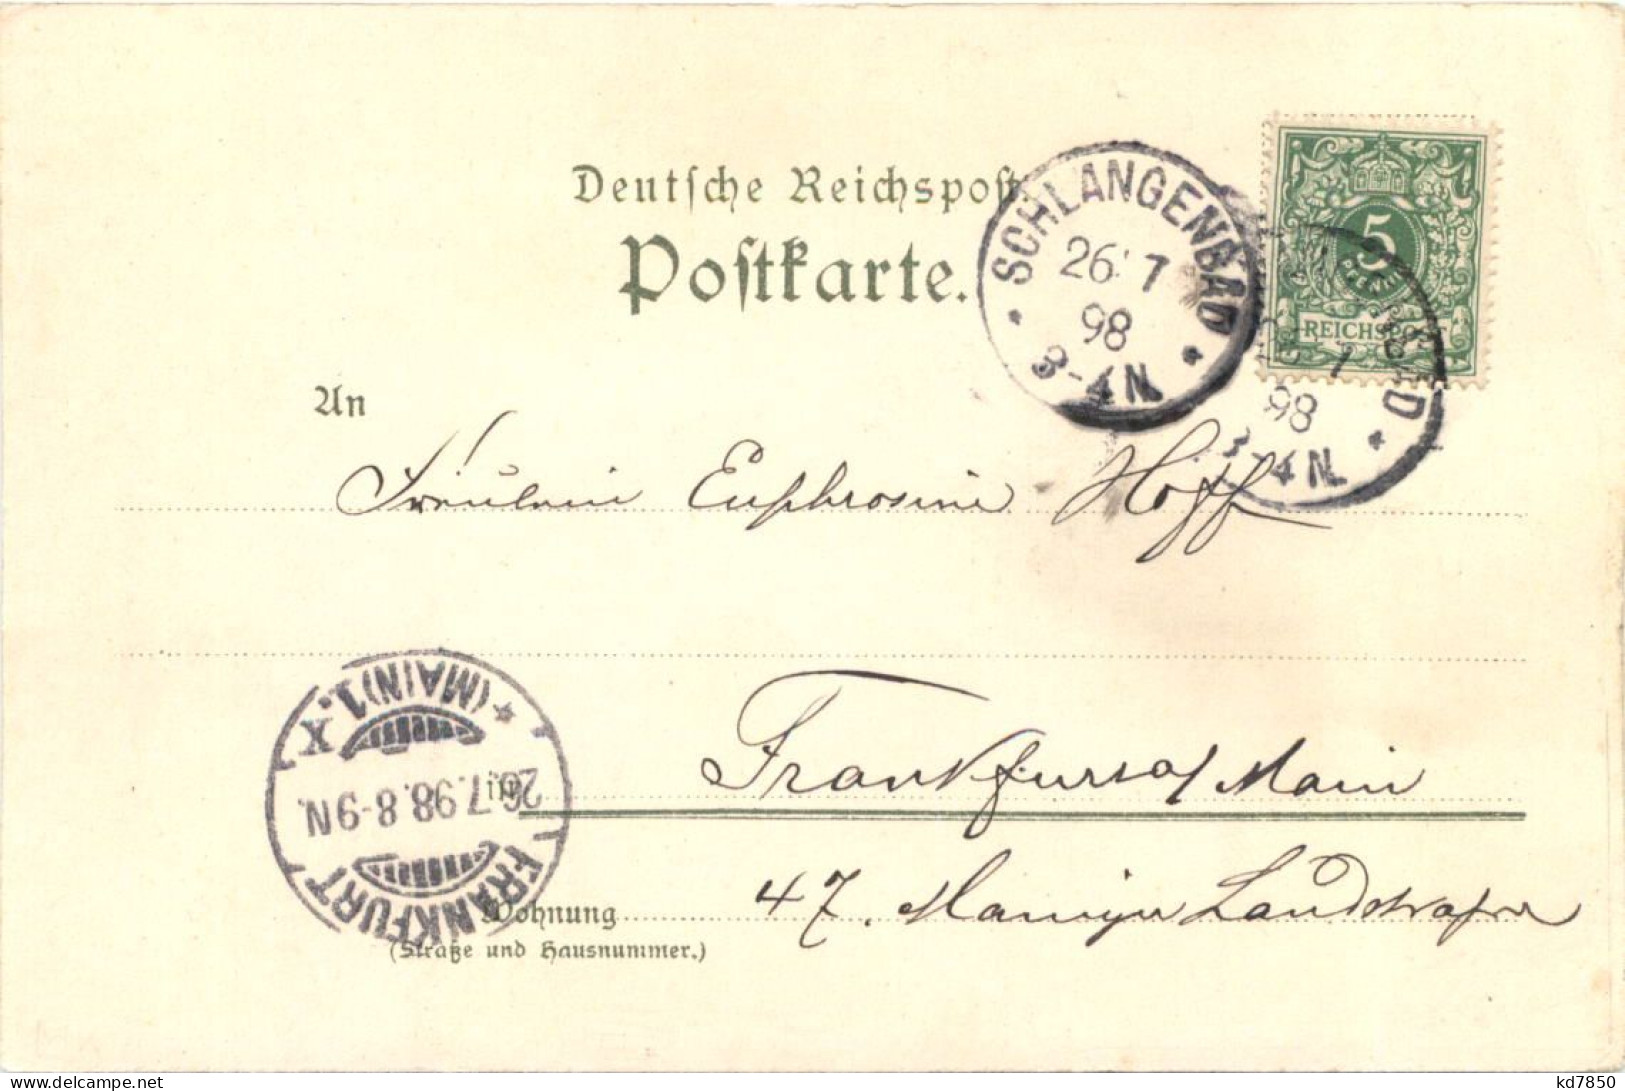 Deutsche Reichspost
Postkarte.
SCHLANGENBAD
26 7
98
3-4N.
5
PFENNIG
REICHSPOST
98
3-4N.
An
Fräulein Euphrosine Hoff
Frankfurt a/ Main
in
47. Mainzer Landstrasse
Wohnung
(Straße und Hausnummer.)
FRANKFURT
26.7.98.8-9N.
(MAIN)1.
X
kd7850